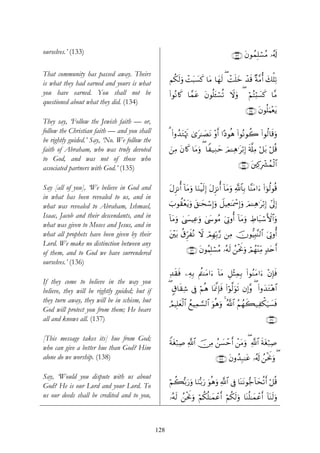 ourselves.’ (133)
لَهُۥ مُسْلِمُونَ ﴿١٣٣﴾
That community has passed away. Theirs
is what they had earned and yours is what
you have earned. You shall not be
questioned about what they did. (134)
تِلْكَ أُمَّةٌ قَدْ خَلَتْ ۖ لَهَا مَا كَسَبَتْ وَلَكُم
مَّا كَسَبْتُمْ ۖ وَلَا تُسْـَٔلُونَ عَمَّا كَانُوا۟
يَعْمَلُونَ ﴿١٣٤﴾
They say, ‘Follow the Jewish faith — or,
follow the Christian faith — and you shall
be rightly guided.’ Say, ‘No. We follow the
faith of Abraham, who was truly devoted
to God, and was not of those who
associated partners with God.’ (135)
وَقَالُوا۟ كُونُوا۟ هُودًا أَوْ نَصَـٰرَىٰ تَهْتَدُوا۟ ۗ
قُلْ بَلْ مِلَّةَ إِبْرَٰهِـۧمَ حَنِيفًا ۖ وَمَا كَانَ مِنَ
ٱلْمُشْرِكِينَ ﴿١٣٥﴾
Say [all of you], ‘We believe in God and
in what has been revealed to us, and in
what was revealed to Abraham, Ishmael,
Isaac, Jacob and their descendants, and in
what was given to Moses and Jesus, and in
what all prophets have been given by their
Lord. We make no distinction between any
of them, and to God we have surrendered
ourselves.’ (136)
قُولُوٓا۟ ءَامَنَّا بِٱللَّهِ وَمَآ أُنزِلَ إِلَيْنَا وَمَآ أُنزِلَ
إِلَىٰٓ إِبْرَٰهِـۧمَ وَإِسْمَـٰعِيلَ وَإِسْحَـٰقَ وَيَعْقُوبَ
وَٱلْأَسْبَاطِ وَمَآ أُوتِىَ مُوسَىٰ وَعِيسَىٰ وَمَآ
أُوتِىَ ٱلنَّبِيُّونَ مِن رَّبِّهِمْ لَا نُفَرِّقُ بَيْنَ
أَحَدٍ مِّنْهُمْ وَنَحْنُ لَهُۥ مُسْلِمُونَ ﴿١٣٦﴾
If they come to believe in the way you
believe, they will be rightly guided; but if
they turn away, they will be in schism, but
God will protect you from them; He hears
all and knows all. (137)
فَإِنْ ءَامَنُوا۟ بِمِثْلِ مَآ ءَامَنتُم بِهِۦ فَقَدِ
ٱهْتَدَوا۟ ۖ وَّإِن تَوَلَّوْا۟ فَإِنَّمَا هُمْ فِى شِقَاقٍ ۖ
فَسَيَكْفِيكَهُمُ ٱللَّهُ ۚ وَهُوَ ٱلسَّمِيعُ ٱلْعَلِيمُ
[This message takes its] hue from God;
who can give a better hue than God? Him
alone do we worship. (138)
﴿١٣٧﴾ صِبْغَةَ ٱللَّهِ ۖ وَمَنْ أَحْسَنُ مِنَ ٱللَّهِ صِبْغَةً
ۖ وَنَحْنُ لَهُۥ عَـٰبِدُونَ ﴿١٣٨﴾
Say, ‘Would you dispute with us about
God? He is our Lord and your Lord. To
us our deeds shall be credited and to you,
قُلْ أَتُحَآجُّونَنَا فِى ٱللَّهِ وَهُوَ رَبُّنَا وَرَبُّكُمْ
وَلَنَآ أَعْمَـٰلُنَا وَلَكُمْ أَعْمَـٰلُكُمْ وَنَحْنُ لَهُۥ
128